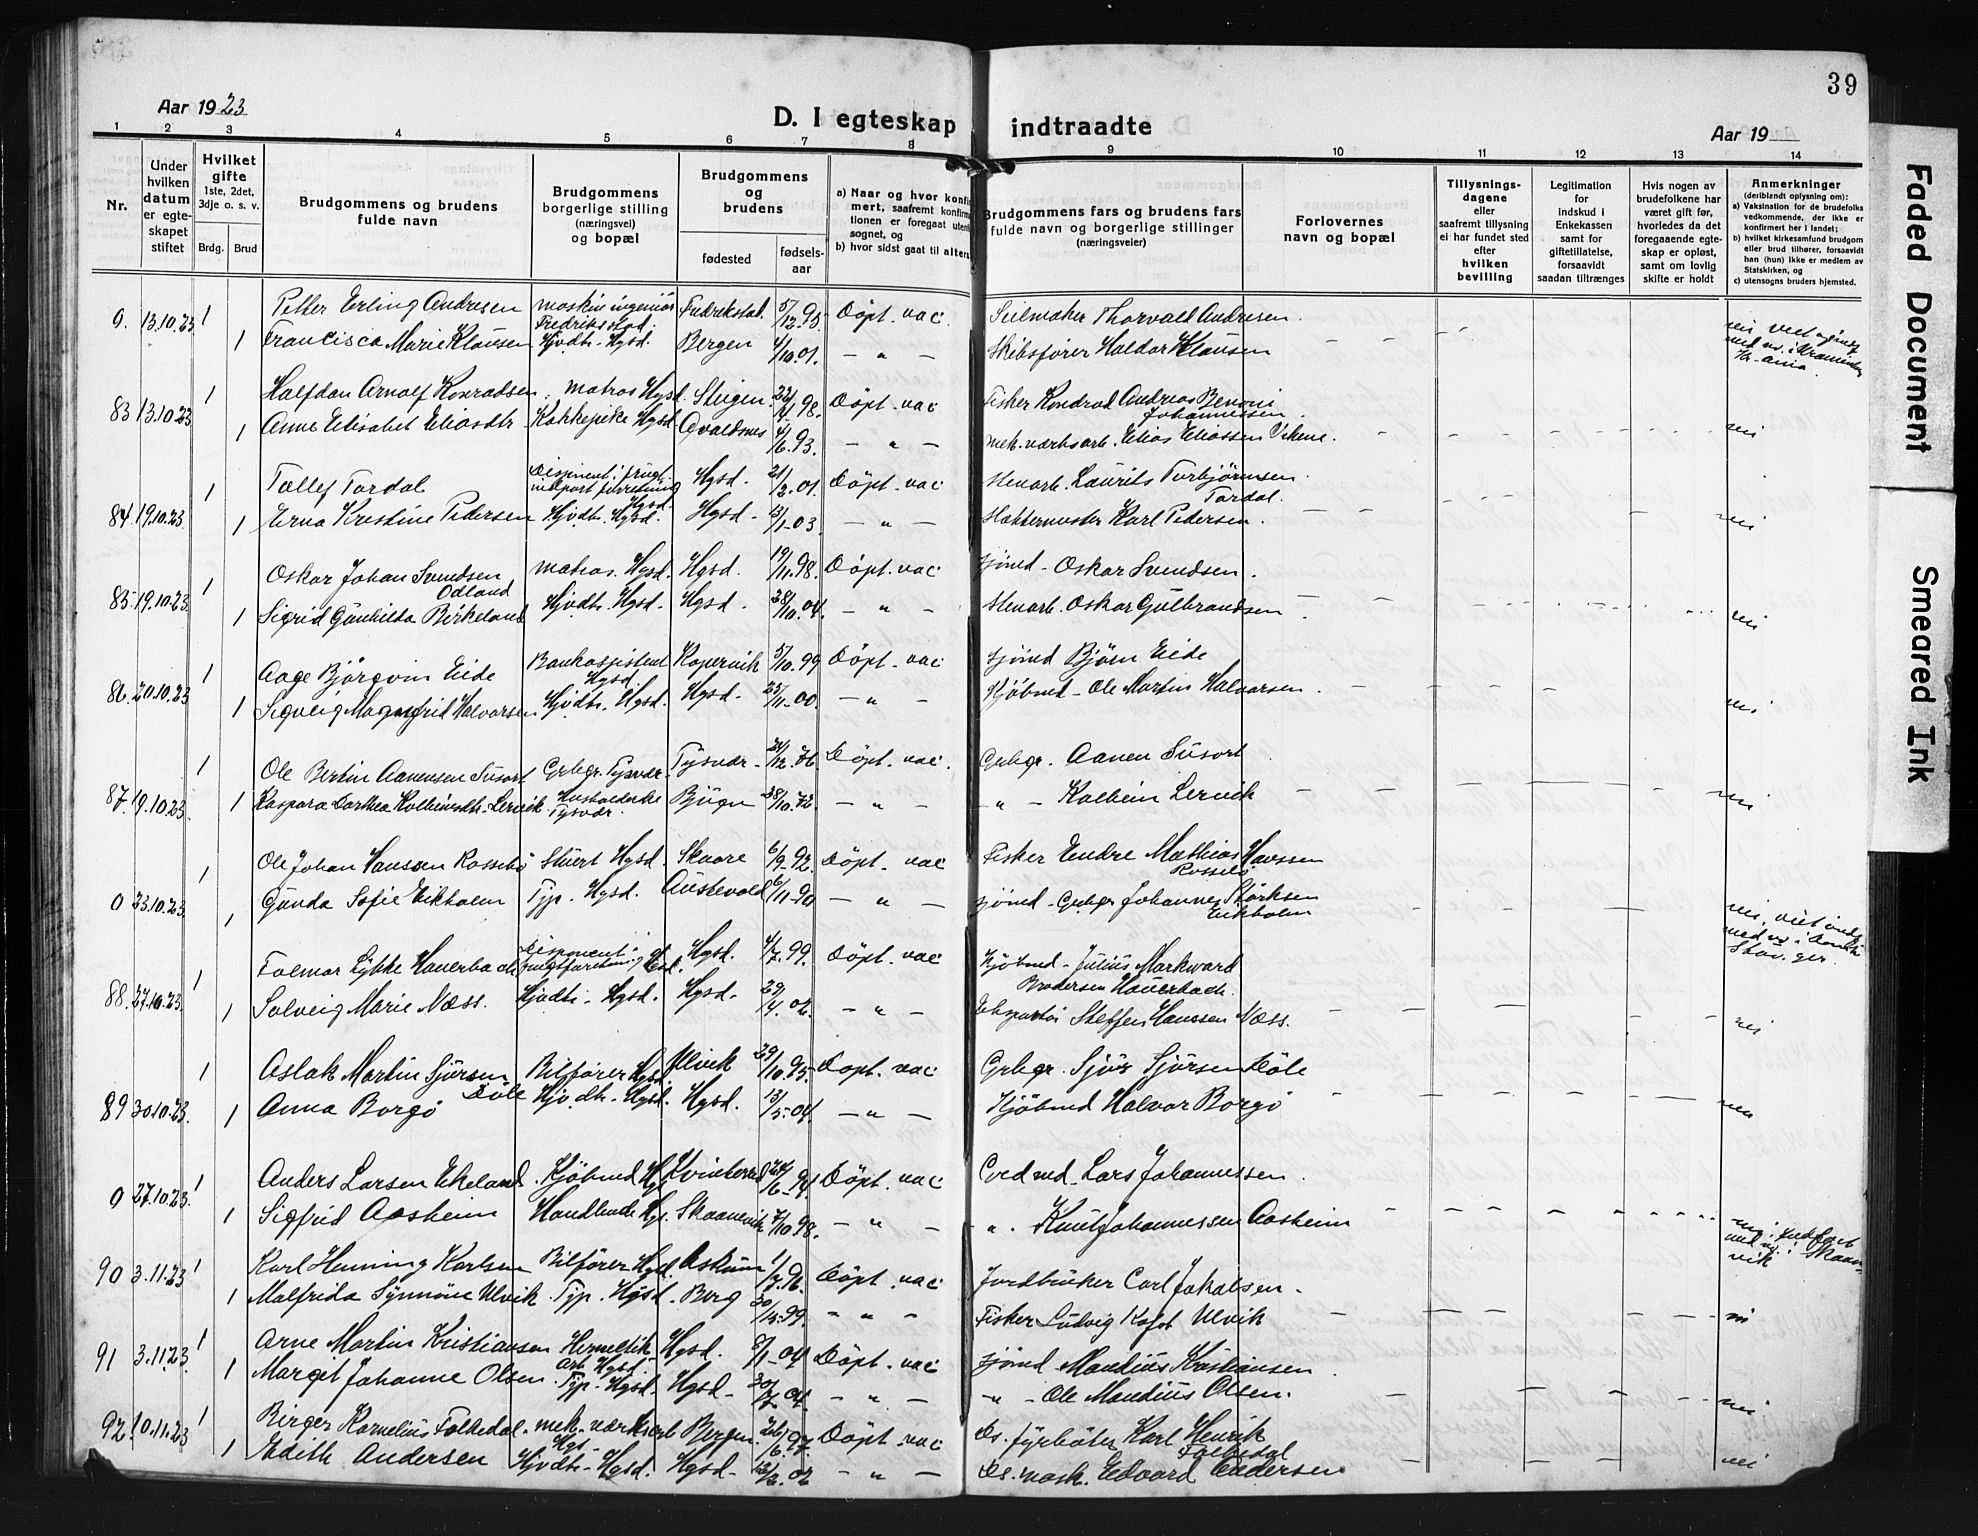 39
Aar 1923
D. I egteskap indtraadte
Aar 19
1 2 3 4 5 6 7 8 9 10 11 12 13 14
Nr.
Under hvilken datum er egteskapet stiftet
Hvilket gifte 1ste, 2det, 3dje o. s. v.
Brdg. Brud
Brudgommens og brudens fulde navn
Brudgommens borgerlige stilling (næringsvei) og bopæl
Brudgommens og brudens
fødested
fødselsaar
a) Naar og hvor
b) hvor sidst gaat til alters
Brudgommens fars og brudens fars fulde navn og borgerlige stillinger (næringsveier)
Forlovernes navn og bopæl
Tillysningsdagene eller saafremt tillysning ei har fundet sted efter hvilken bevilling
Legitimation for indskud i Enkekassen samt for giftetillatelse, forsaavidt saadan tiltrænges
Hvis nogen av brudefolkene har været gift før, hvorledes da det foregaaende egteskap er opløst, samt om lovlig skifte er holdt
Anmerkninger (deriblandt oplysning om):
a) Vaksination for de brudefolks vedkommende, der ikke er konfirmert her i landet;
b) hvilket kirkesamfund brudgom eller brud tilhører, forsaavidt han (hun) ikke er medlem av Statskirken, og
c) utensogns bruders hjemsted.
Faded Document
Smeared Ink
0. 13.10.23 1 Petter Erling Andresen maskiningeniør Fredriksstad. Fredrikstad. 5/12.95 Döpt. vac. Seilmaker Thorvald Andresen
1 Francisca Marie Klausen Hjvdt. Hgsd. Bergen 4/10.01. — " — Skibsfører Haldor Klausen
83 13.10.23 1 Halfdan Arnolf Konradsen. matros Hgsd. Steigen 22/4.98. Döpt. vac Fisker Kondrad Andreas Benoni Johannessen
1 Anne Elisabet Eliasdtr Kokkepike Hgsd Avaldsnes 4/6.93. — " — mek. værksarb. Elias Eliassen Vikene. nei
84 19.10.23 1 Tollef Tordal Disponent i frugt Hgsd. Hgsd. 21/2.01. Döpt. vac Stenarb. Laurits Torbjørnsen Tordal.
1 Erna Kristine Pedersen Hjvdt. Hgsd. Hgsd. 13/1-03 — " — Karl Pedersen. nei
85 19.10.23. 1 Oskar Johan Svendsen Odland matros. Hgsd. Hgsd. 19/11.98. Döpt. vac sjömd. Oskar Svendsen.
1 Sigrid Gunhilda Birkeland Hjvdt. Hgsd. Hgsd. 28/10.04. — " — Stenarb. Oskar Gulbrandsen nei
86. 20.10.23 1 Aage Bjørgvin Eide Bankassistent Hgsd Kopervik 5/10.99 Döpt. vac sjömd Bjørn Eide
1 Sigveig Magnfrid Halvorsen Hjvdt. Hgsd. Hgsd. 25/11-00. — " — Kjöbmd. Ole Martin Halvorsen. nei
87. 19.10.23. 1 Ole Bertin Aanensen Susort Grbgr. Tysvær. Tysvær. 24/12.76. Döpt. vac. Grbgr. Aanen Susort
1 Kaspara Dorthea Kolbeinsdtr. Lervik. Husholderske Tysvær. 28/10.72. — " — — " — Kolbein Lervik nei
0 23.10.23. 1 Ole Johan Hanssen Rossebø Stuert Hgsd. Skaare 6/9.92. Döpt. vac Fisker Endre Mathias Hanssen Rossebø
1 Gunda Sofie Eikholm Typ. Hgsd. Austevold 6/11.90 — " — sjömd. Grbgr Johannes Störksen Eikholm
88. 27.10.23. 1 Folmar Lykke Hauerbach Disponent i Hgsd. 4/7.99. Döpt. vac Kjöbmd. Julius Markward Brodersen Hauerbach.
1 Solveig Marie Næss. Hjvdt. Hgsd. Hgsd. — " — Steffen Hanssen Næss. nei
89 30.10.23. 1 Aslak Martin Sjursen Döle Bilfører Hgsd. Ulvik 29/10.95. Döpt. vac Grbgr. Sjur Sjursen Döle
1 Anna Borgø Hjvdt. Hgsd. Hgsd. 13/5-04. — " — Kjöbmd Halvor Borgø nei
0 27.10.23. 1 Anders Larsen Ekeland. Kjöbmd Kvinherad 24/6-94. Döpt. vac Lars Johannessen.
1 Sigfrid Aasheim Skaanevik 7/10.98. — " — — " — Knut Johannessen Aasheim
90 3.11.23 1 Karl Henning Karlsen Bilfører Hgsd. Askum 1/7.96. Döpt. vac Jordbruker Carl Jakobsen.
1 Malfrida Synnöve Ulvik. Typ. Hgsd. Borg — " — Fisker Ludvig Kofod Ulvik nei
91 3.11.23 1 Arne Martin Kristiansen Hermetikarb. Hgsd. Hgsd. 8/1-04 Döpt. vac sjömd. Mandius Kristiansen
1 Margit Johanne Olsen. Typ. Hgsd. Hgsd. — " — — " — Ole Mandius Olsen. nei
92. 10.11.23 1 Birger Kornelius Folkedal. mek. værksarb Hgs. Bergen. 26/6.97. Döpt. vac Ds. fyrböter Karl Henrik Folkedal
1 Edith Andersen Hjvdt. Hgsd. Hgsd. — " — Ds. mask. Edvard Andersen nei